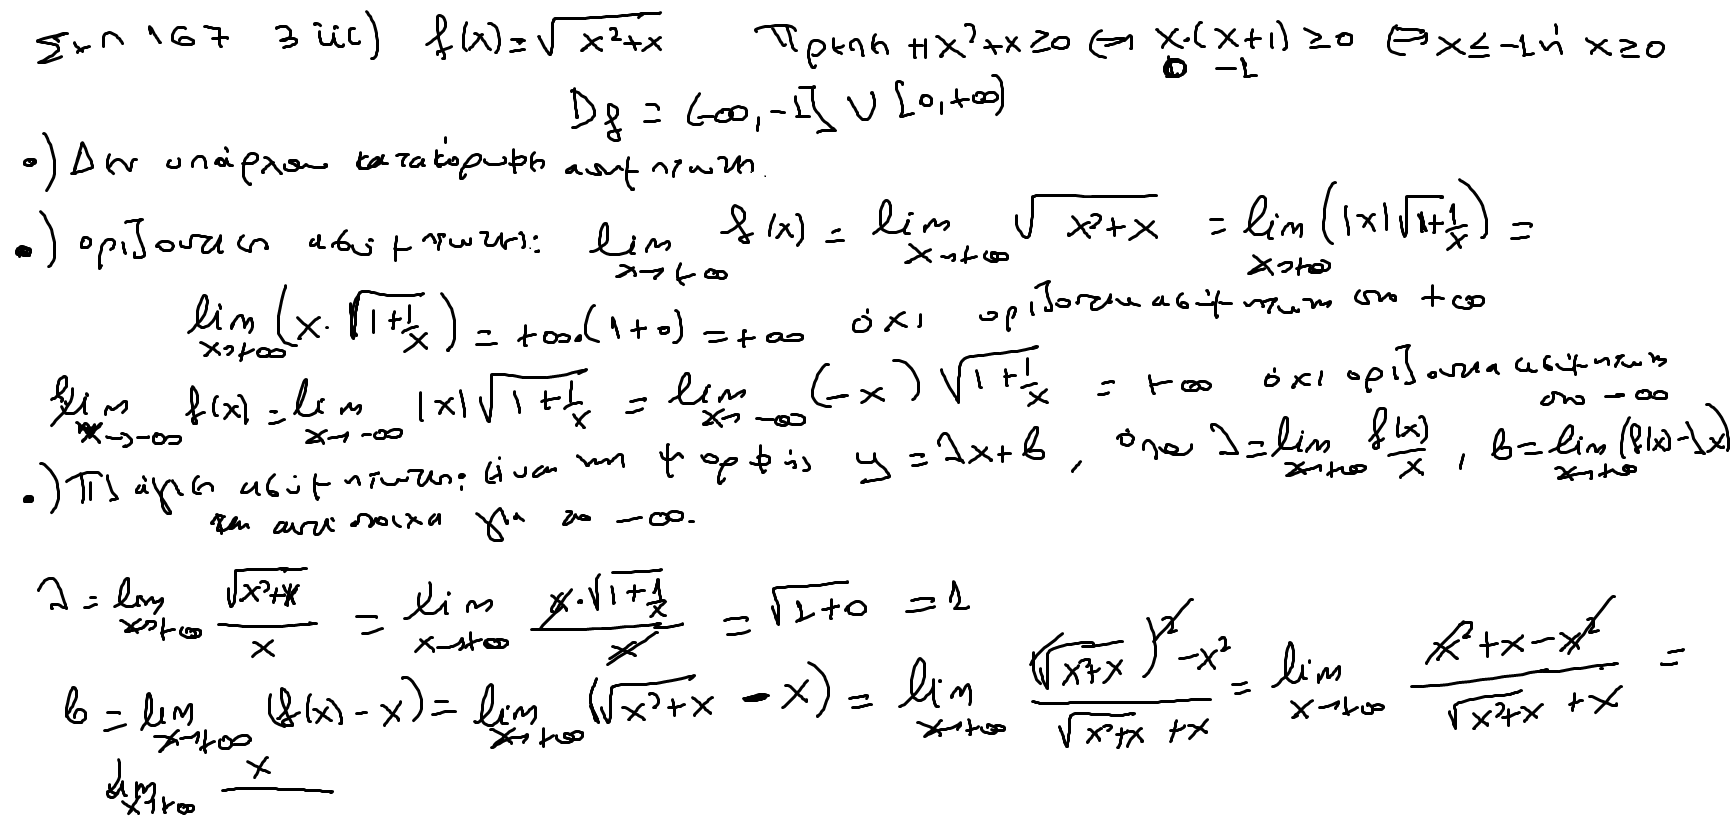 Σχπ 167 3 iic) f(x)=√(x²+x) Πρέπει x²+x≥0 ⇔ x·(x+1)≥0 ⇔ x≤-1 ή x≥0
0 -1
D_f = (-∞,-1] ∪ [0,+∞)
•) Δεν υπάρχουν κατακόρυφη ασύμπτωτη.
•) οριζόντιες ασύμπτωτες: lim_{x→+∞} f(x) = lim_{x→+∞} √(x²+x) = lim_{x→+∞} (|x|√(1+1/x)) =
lim_{x→+∞} (x·√(1+1/x)) = +∞·(1+0) = +∞ όχι οριζόντια ασύμπτωτη στο +∞
lim_{x→-∞} f(x) = lim_{x→-∞} |x|√(1+1/x) = lim_{x→-∞} (-x)√(1+1/x) = +∞ όχι οριζόντια ασύμπτωτη
στο -∞
•) Πλάγιες ασύμπτωτες: είναι της μορφής y=λx+b, όπου λ=lim_{x→+∞} f(x)/x, b=lim_{x→+∞} (f(x)-λx)
και αντίστοιχα για το -∞.
λ = lim_{x→+∞} √(x²+x)/x = lim_{x→+∞} x·√(1+1/x)/x = √(1+0) = 1
b = lim_{x→+∞} (f(x)-x) = lim_{x→+∞} (√(x²+x) - x) = lim_{x→+∞} ((√(x²+x))²-x²)/(√(x²+x)+x) = lim_{x→+∞} (x²+x-x²)/(√(x²+x)+x) =
lim_{x→+∞} x/